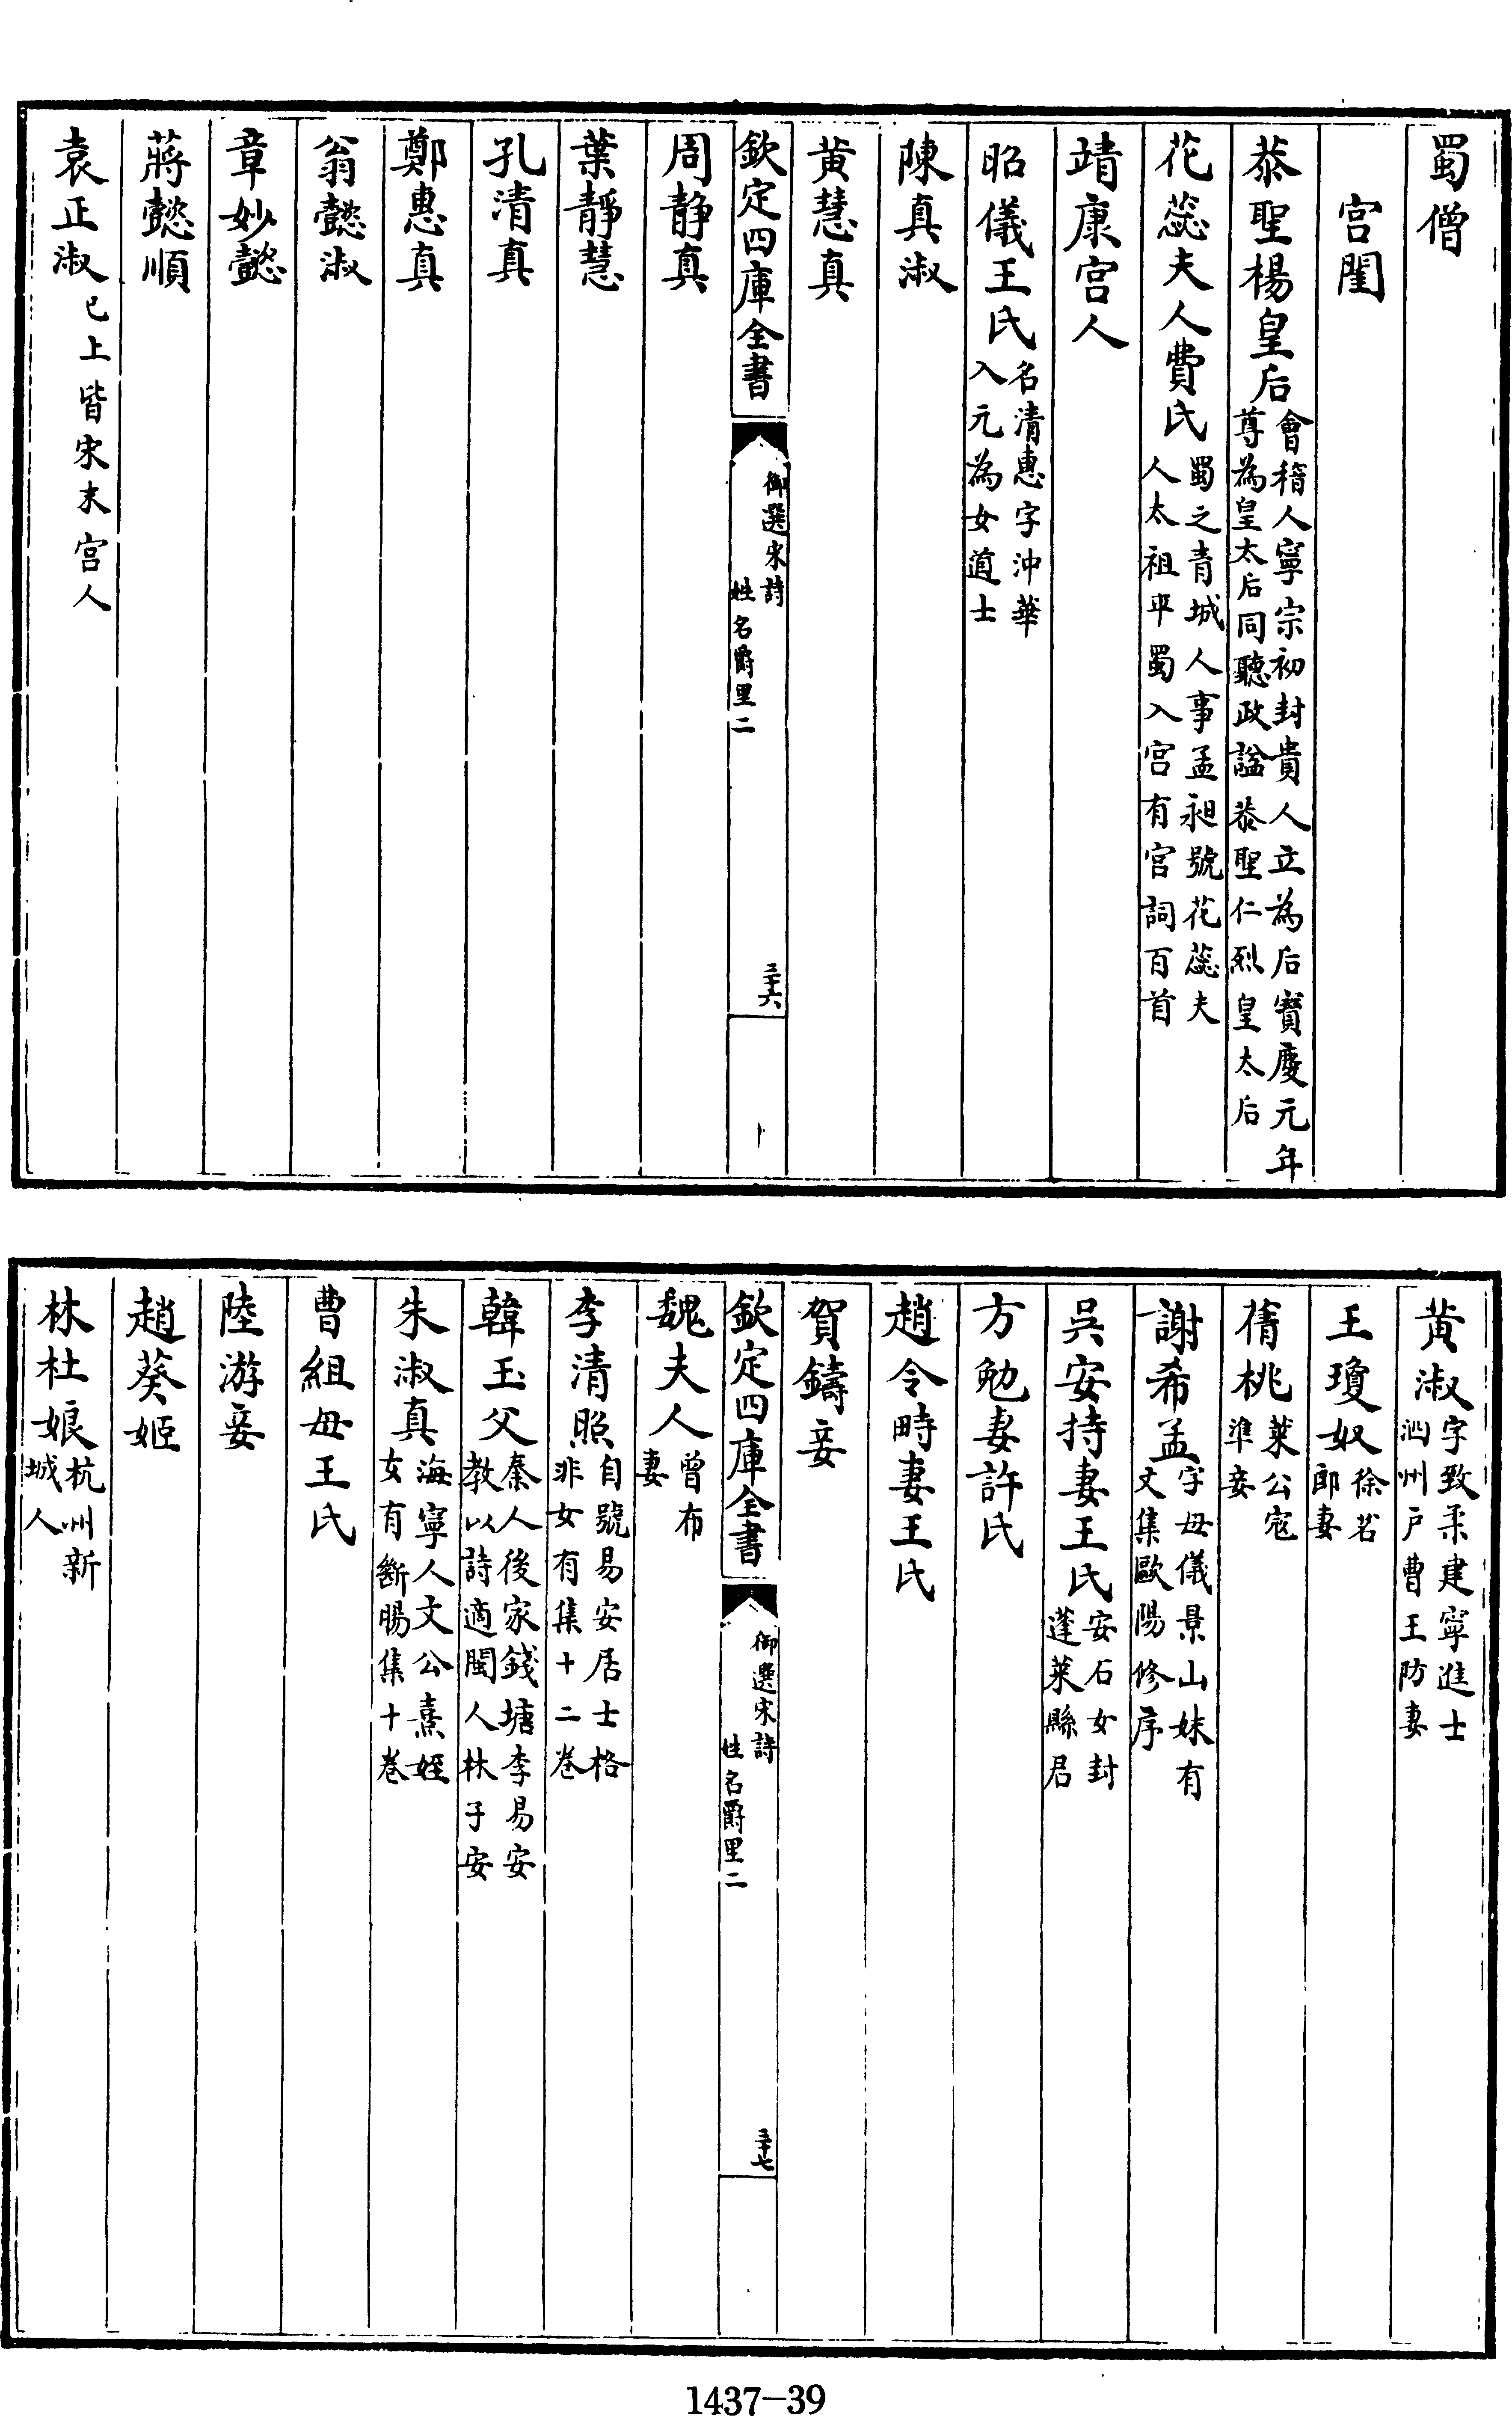 蜀僧
宮闈
恭聖楊皇后會稽人寧宗初封貴人立為后寳慶元年
尊為皇太后同聽政諡恭聖仁烈皇太后
花蕊夫人費氏蜀之青城人事孟昶號花蕊夫
人太祖平蜀入宮有宮詞百首
靖康宮人
昭儀王氏名清惠字沖華
入元為女道士
陳真淑
黄慧真
欽定四庫全書
御選宋詩
姓名爵里二
三十六
周静真
葉靜慧
孔清真
鄭惠真
翁懿淑
章妙懿
蔣懿順
袁正淑已上皆宋末宮人
黄淑字致柔建寧進士
泗州戶曹王防妻
王瓊奴徐苕
郎妻
蒨桃萊公寇
準妾
謝希孟字母儀景山妹有
文集歐陽修序
吳安持妻王氏安石女封
蓬萊縣君
方勉妻許氏
趙令畤妻王氏
賀鑄妾
欽定四庫全書
御選宋詩
姓名爵里二
三十七
魏夫人曾布
妻
李清照自號易安居士格
非女有集十二卷
韓玉父秦人後家錢塘李易安
教以詩適閩人林子安
朱淑真海寧人文公熹姪
女有斷腸集十卷
曹組母王氏
陸游妾
趙葵姬
林杜娘杭州新
城人
1437-39